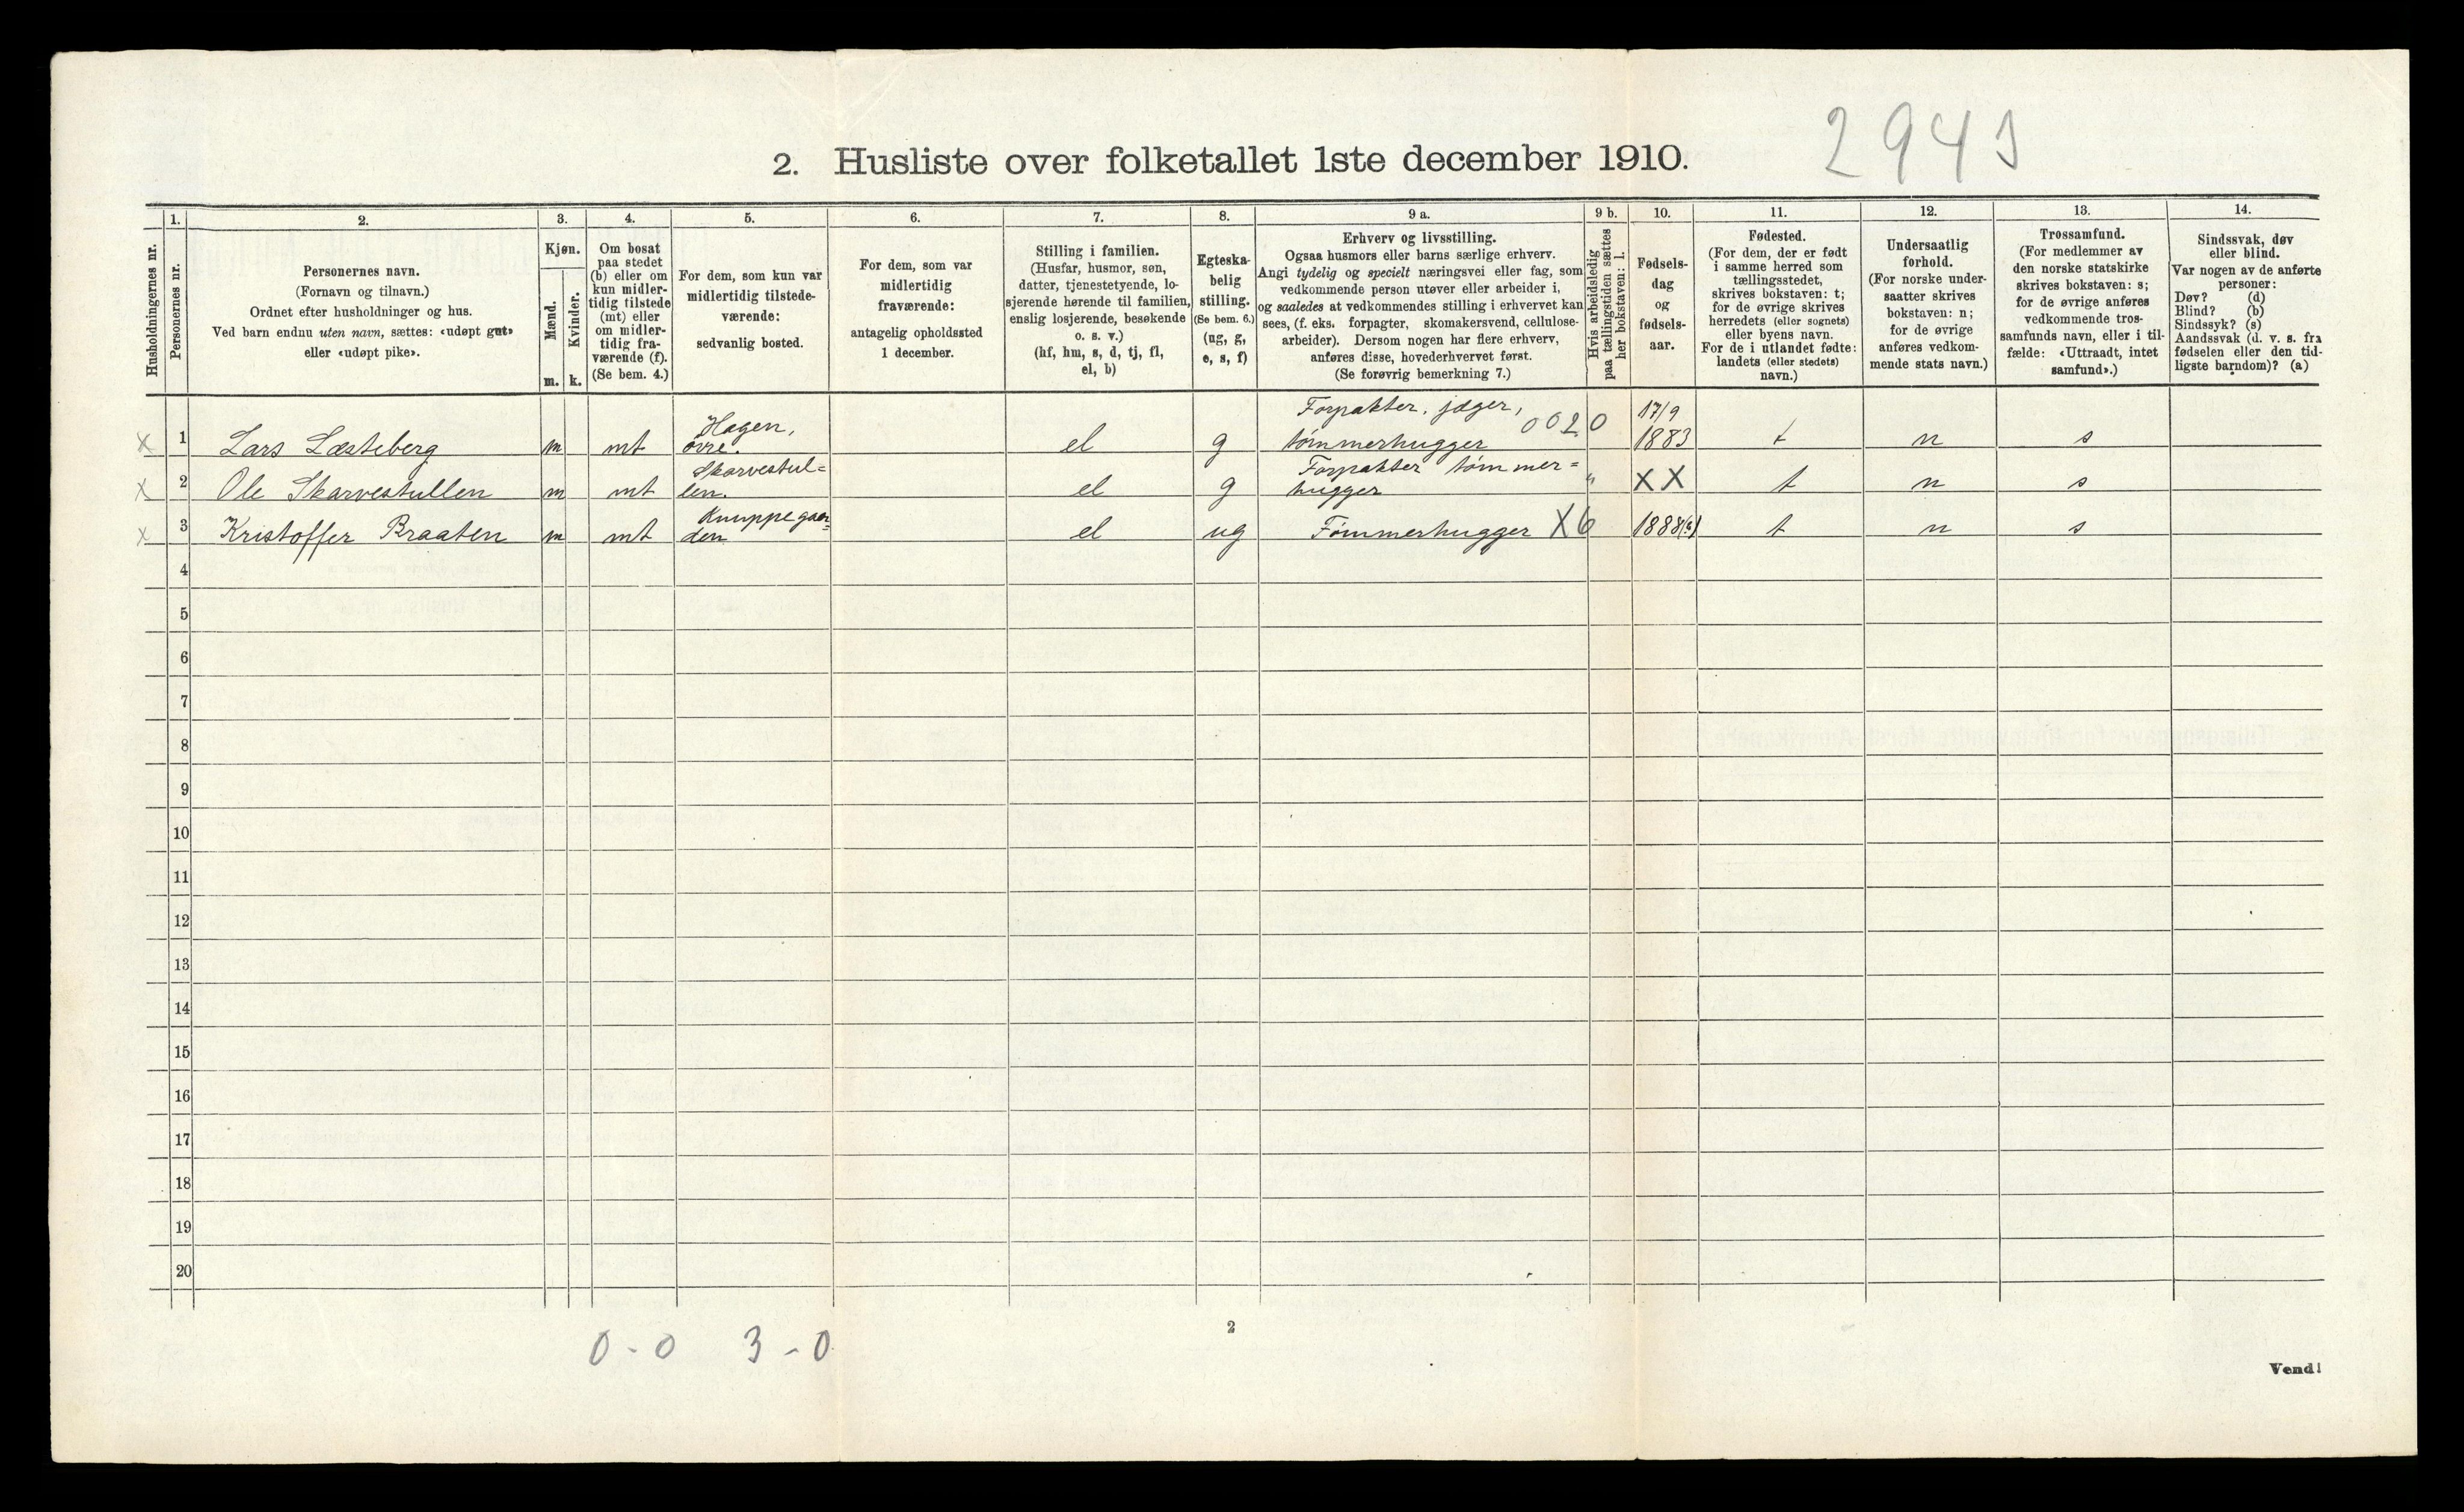 2943
2. Husliste over folketallet 1ste december 1910.
1. 2. 3. 4. 5. 6. 7. 8. 9 a. 9 b. 10. 11. 12. 13. 14.
Husholdningernes nr.
Personernes nr.
Personernes navn.
(Fornavn og tilnavn.)
Ordnet efter husholdninger og hus.
Ved barn endnu uten navn, sættes: «udøpt gut»
eller «udøpt pike».
Kjøn.
Mænd.
Kvinder.
m. k.
Om bosat
paa stedet
(b) eller om
kun midler-
tidig tilstede
(mt) eller
om midler-
tidig fra-
værende (f).
(Se bem. 4.)
For dem, som kun var
midlertidig tilstede-
værende:
sedvanlig bosted.
For dem, som var
midlertidig
fraværende:
antagelig opholdssted
1 december.
Stilling i familien.
(Husfar, husmor, søn,
datter, tjenestetyende, lo-
sjerende hørende til familien,
enslig losjerende, besøkende
o. s. v.)
(hf, hm, s, d, tj, fl,
el, b)
Egteska-
belig
stilling.
(Se bem. 6.)
(ug, g,
e, s, f)
Erhverv og livsstilling.
Ogsaa husmors eller barns særlige erhverv.
Angi tydelig og specielt næringsvei eller fag, som
vedkommende person utøver eller arbeider i,
og saaledes at vedkommendes stilling i erhvervet kan
sees, (f. eks. forpagter, skomakersvend, cellulose-
arbeider). Dersom nogen har flere erhverv,
anføres disse, hovederhvervet først.
(Se forøvrig bemerkning 7.)
Hvis arbeidsledig
paa tællingstiden sættes
her bokstaven: l.
Fødsels-
dag
og
fødsels-
aar.
Fødested.
(For dem, der er født
i samme herred som
tællingsstedet,
skrives bokstaven: t;
for de øvrige skrives
herredets (eller sognets)
eller byens navn.
For de i utlandet fødte:
landets (eller stedets)
navn.)
Undersaatlig
forhold.
(For norske under-
saatter skrives
bokstaven: n;
for de øvrige
anføres vedkom-
mende stats navn.)
Trossamfund.
(For medlemmer av
den norske statskirke
skrives bokstaven: s;
for de øvrige anføres
vedkommende tros-
samfunds navn, eller i til-
fælde: «Uttraadt, intet
samfund».)
Sindssvak, døv
eller blind.
Var nogen av de anførte
personer:
Døv? (d)
Blind? (b)
Sindssyk? (s)
Aandssvak (d. v. s. fra
fødselen eller den tid-
ligste barndom)? (a)
Hagen, Forpakter, jæger, 0020 17/9
x 1 Lars Læsteberg m mt øvre. el g tømmerhugger 1883 t n s
Skarvestul= Forpakter tømmer=
x 2 Ole Skarvestullen m mt len. el g hugger " XX t n s
Knuppegaar=
x 3 Kristoffer Braaten m mt den el ug Tømmerhugger X6 1888 t n s
4
5
6
7
8
9
10
11
12
13
14
15
16
17
18
19
20
0 - 0 3 - 0
2
Vend!